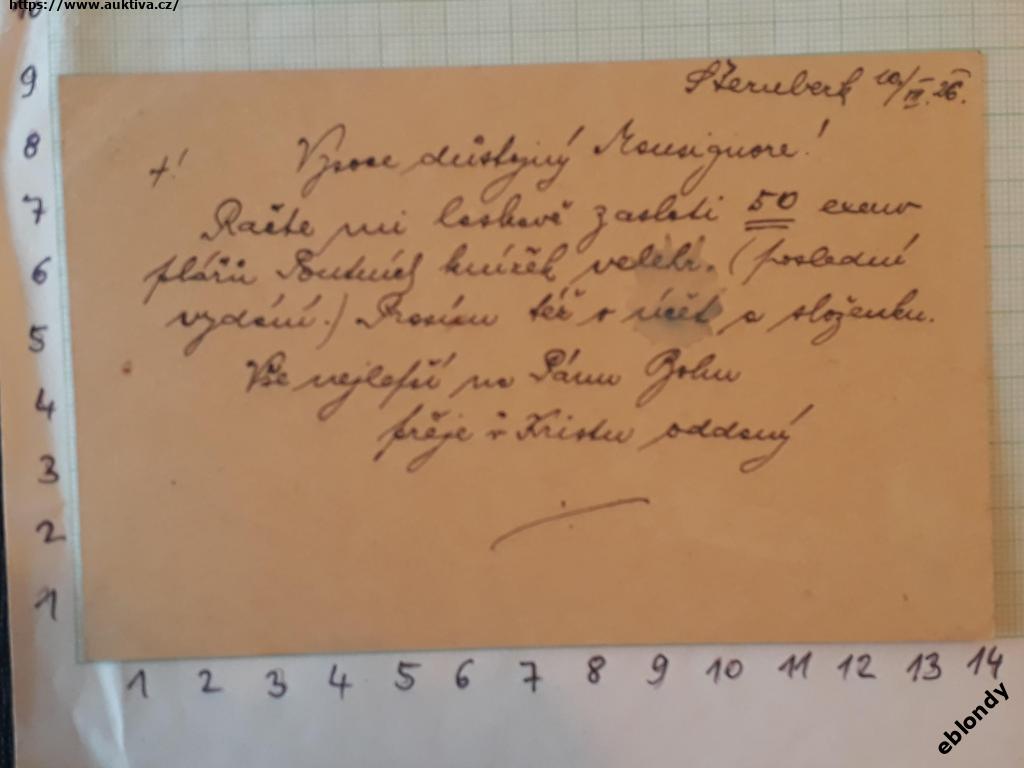 https://www.auktiva.cz/
Šternberk 10/IV. 26.
+! Vysoce důstojný Monsignore!
Račte mi laskavě zaslati 50 exem
plářů Poutních knížek velehr. (poslední
vydání.) Prosím též o účet a složenku.
Vše nejlepší na Pánu Bohu
přeje v Kristu oddaný
10
9
8
7
6
5
4
3
2
1
1 2 3 4 5 6 7 8 9 10 11 12 13 14
eblondy